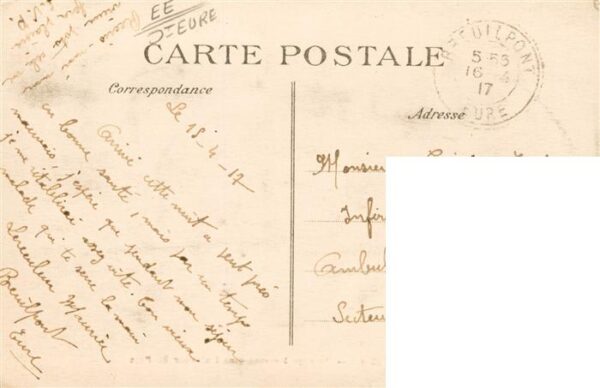 EE
DIEURE
CARTE POSTALE
Correspondance
Adresse
BREUILPONT
5 55
16 4
17
EURE
Le 15-4-17
Arrivé cette nuit à peu près
en bonne santé, mais par un temps
mauvais j'espère que pendant mon séjour
je me rétablirai assez vite. Ton vieux
malade qui te serre la main
Maurice
Breuilpont
Eure
Monsieur
Infir
Ambul
Secteu